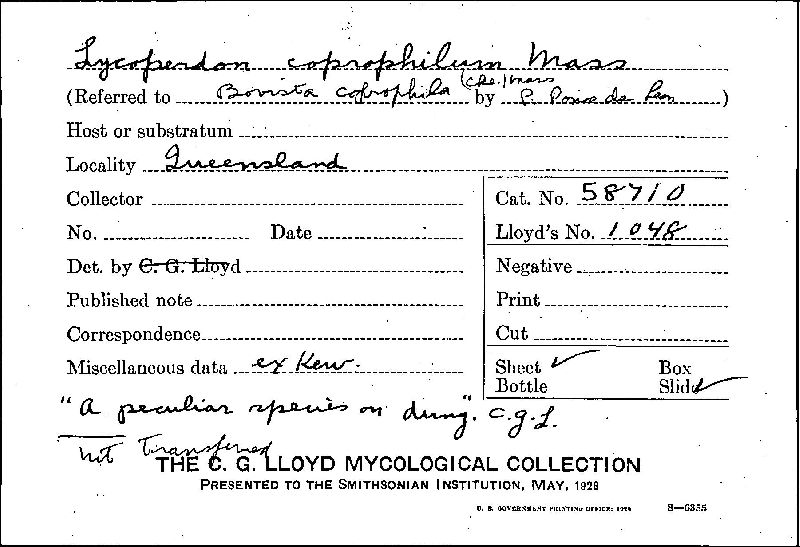 Lycoperdon coprophilum Mass
(Referred to Bovista coprophila (Cke.) Mass by P. Ponce de Leon)
Host or substratum
Locality Queensland
Collector
No. Date
Det. by C. G. Lloyd
Published note
Correspondence
Miscellaneous data ex Kew.
Cat. No. 58710
Lloyd's No. 1048
Negative
Print
Cut
Sheet ✓ Box
Bottle Slide ✓
"A peculiar species on dung". C.G.L.
Not Transferred
THE C. G. LLOYD MYCOLOGICAL COLLECTION
PRESENTED TO THE SMITHSONIAN INSTITUTION, MAY, 1928
U. S. GOVERNMENT PRINTING OFFICE: 1928 8—6355